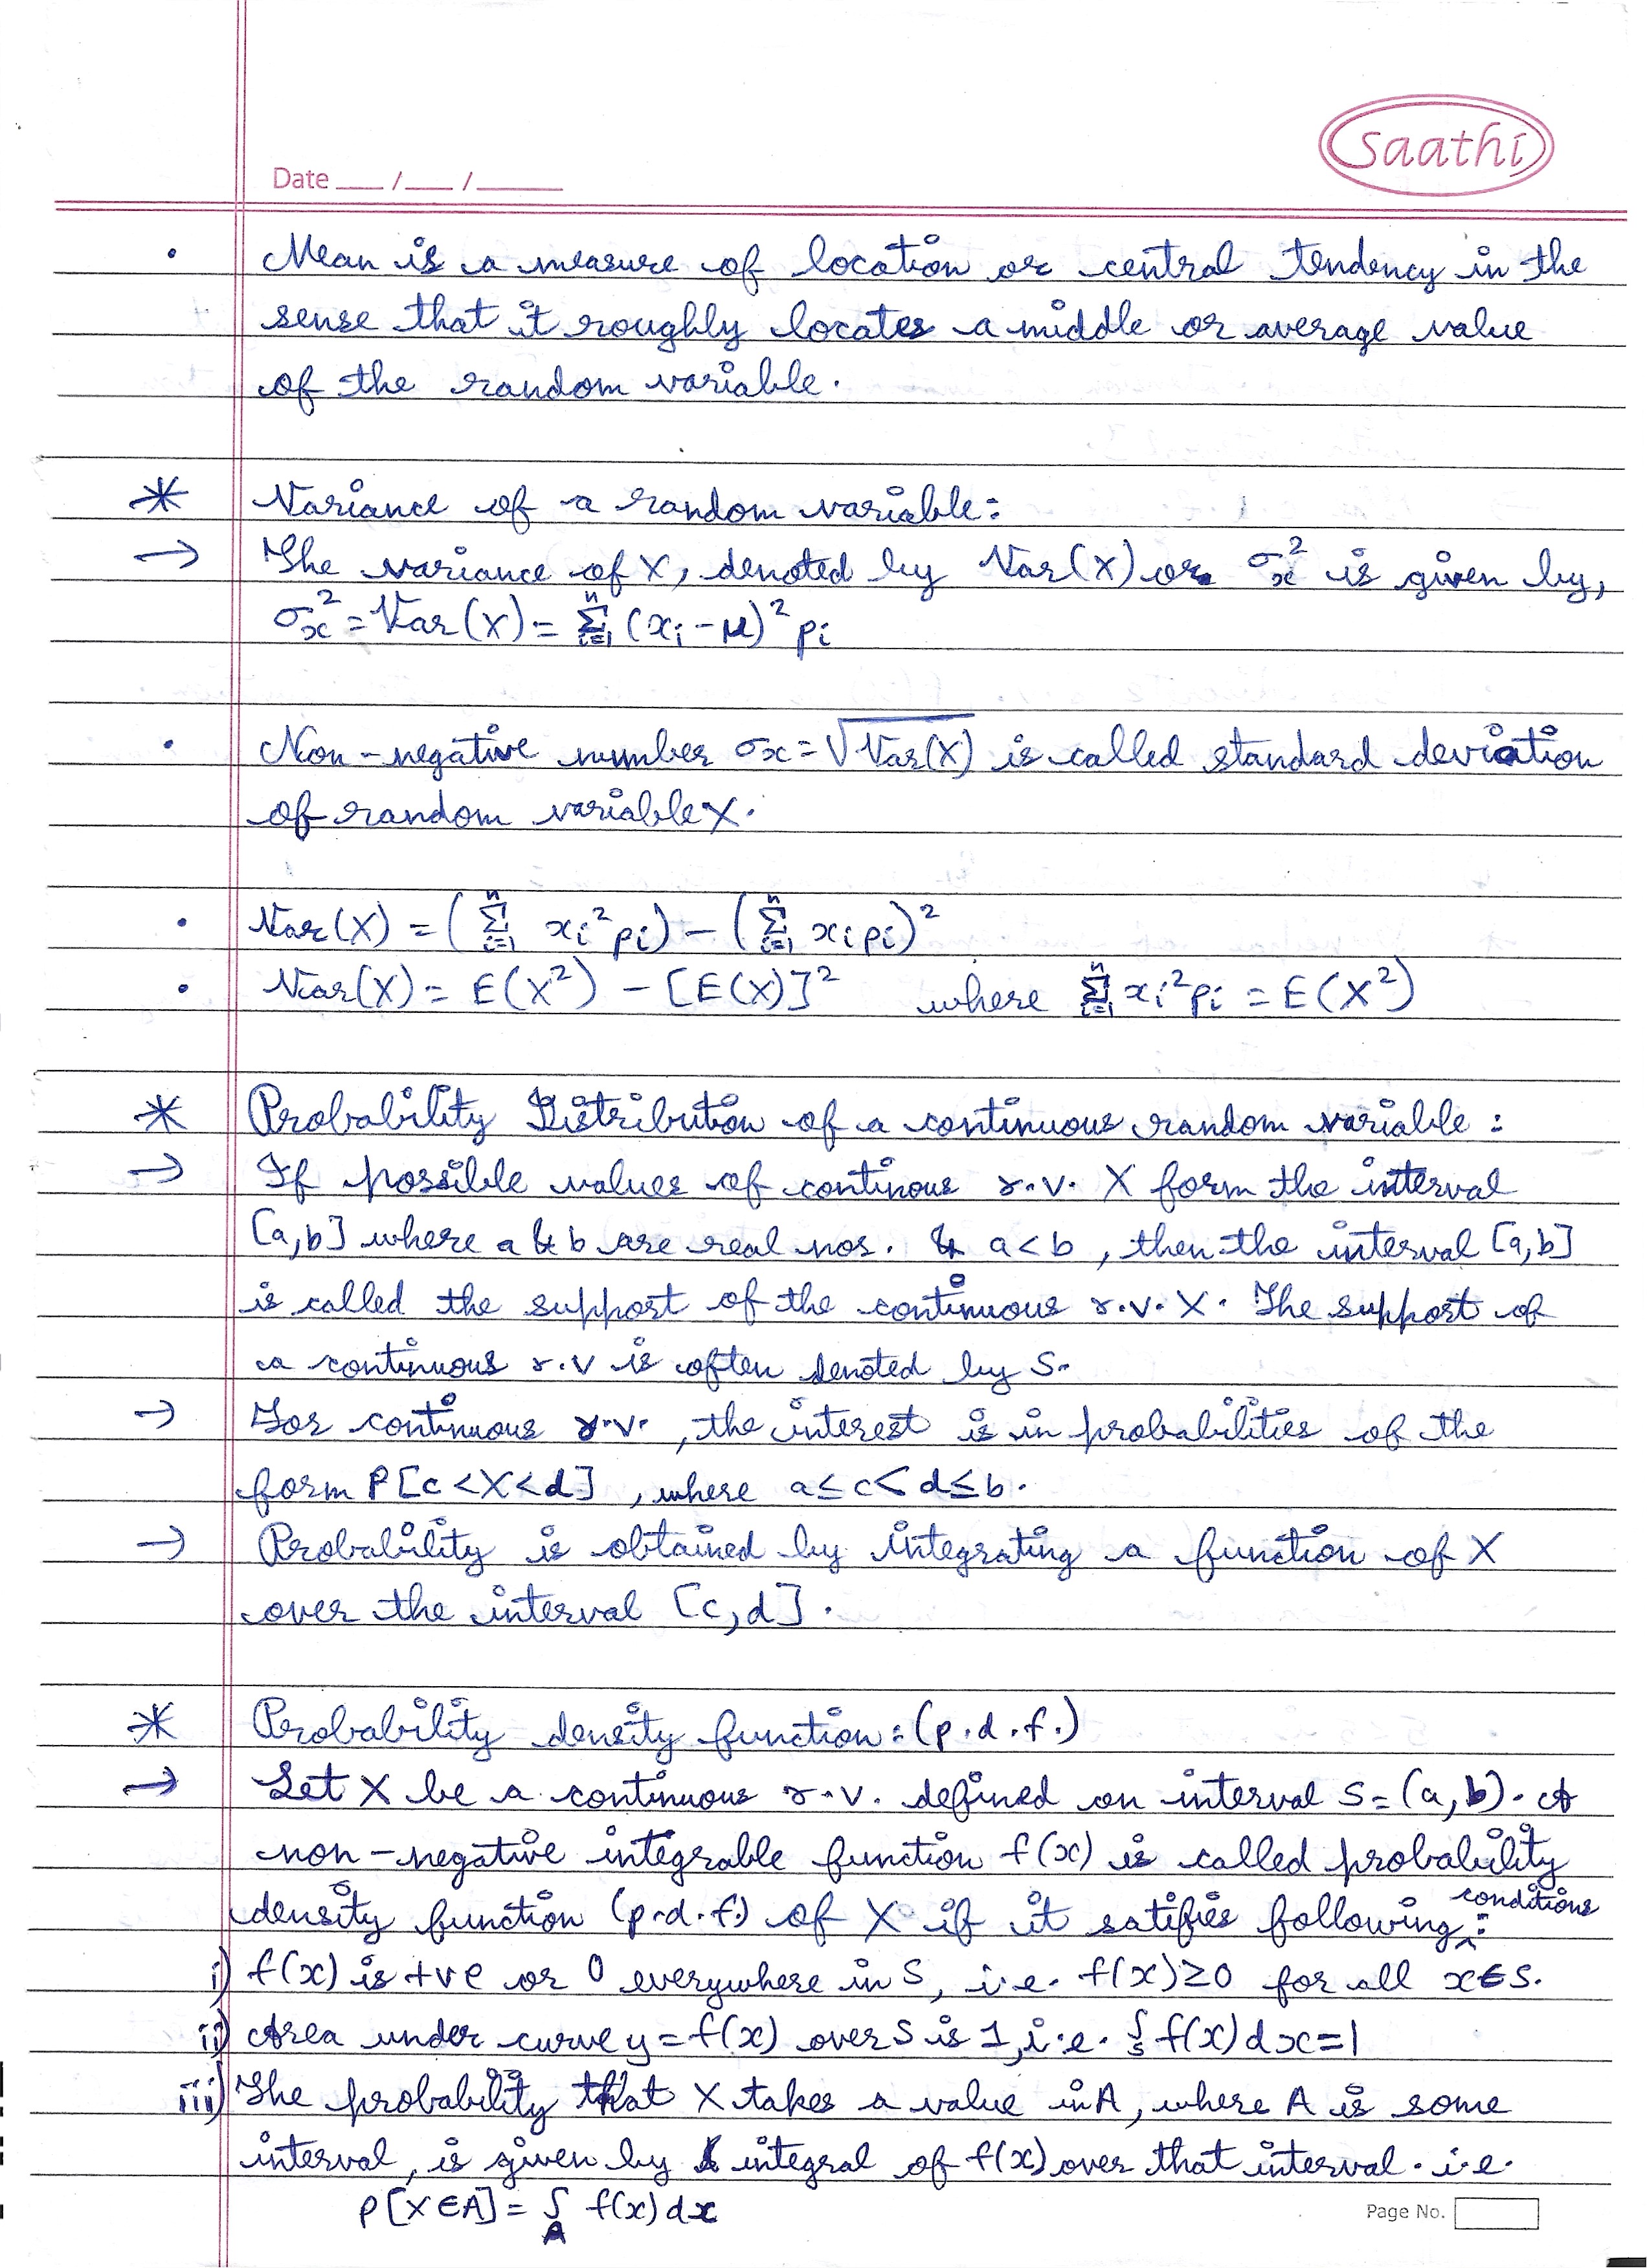 saathi
Date ___ / ___ / ______
• Mean is a measure of location or central tendency in the
sense that it roughly locates a middle or average value
of the random variable.
* Variance of a random variable:
→ The variance of X, denoted by Var(X) or σx² is given by,
σx² = Var(X) = Σⁿᵢ₌₁ (xi - μ)² pi
• Non-negative number σx = √Var(X) is called standard deviation
of random variable X.
• Var(X) = (Σⁿᵢ₌₁ xi² pi) - (Σⁿᵢ₌₁ xi pi)²
• Var(X) = E(X²) - [E(X)]² where Σⁿᵢ₌₁ xi² pi = E(X²)
* Probability Distribution of a continuous random variable :
→ If possible values of continous r.v. X form the interval
[a,b] where a & b are real nos. & a < b , then the interval [a,b]
is called the support of the continuous r.v. X. The support of
a continuous r.v is often denoted by S.
→ For continuous r.v. , the interest is in probabilities of the
form P[c < X < d] , where a ≤ c < d ≤ b.
→ Probability is obtained by integrating a function of X
over the interval [c,d].
* Probability density function : (p.d.f.)
→ Let X be a continuous r.v. defined on interval S = (a, b). A
non-negative integrable function f(x) is called probability
density function (p.d.f.) of X if it satifies following conditions :
i) f(x) is +ve or 0 everywhere in S, i.e. f(x) ≥ 0 for all x ∈ S.
ii) Area under curve y = f(x) over S is 1, i.e. ∫s f(x) dx = 1
iii) The probability that X takes a value in A, where A is some
interval, is given by integral of f(x) over that interval. i.e.
P[X ∈ A] = ∫A f(x) dx
Page No.